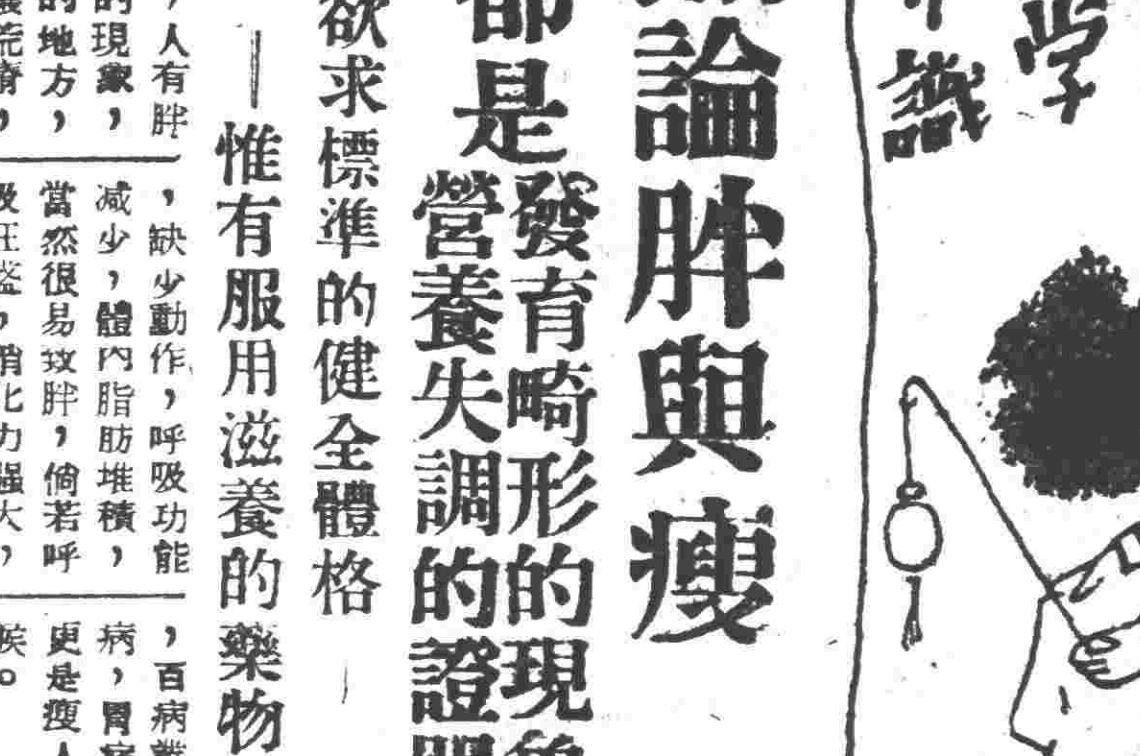 學
識
論胖與瘦
都是
發育畸形的現象
營養失調的證明
欲求標準的健全體格
惟有服用滋養的藥物
，人有胖
的現象，
的地方，
，缺少動作，呼吸功能
減少，體內脂肪堆積，
當然很易致胖，倘若呼
吸旺盛，消化力強大，
，百病
病，胃病
更是瘦人
候。